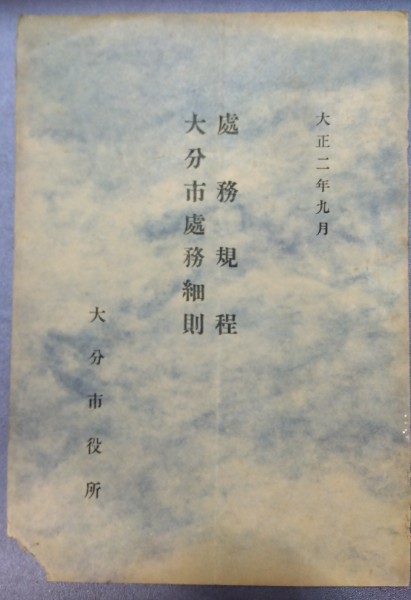 大正二年九月
處務規程
大分市處務細則
大分市役所